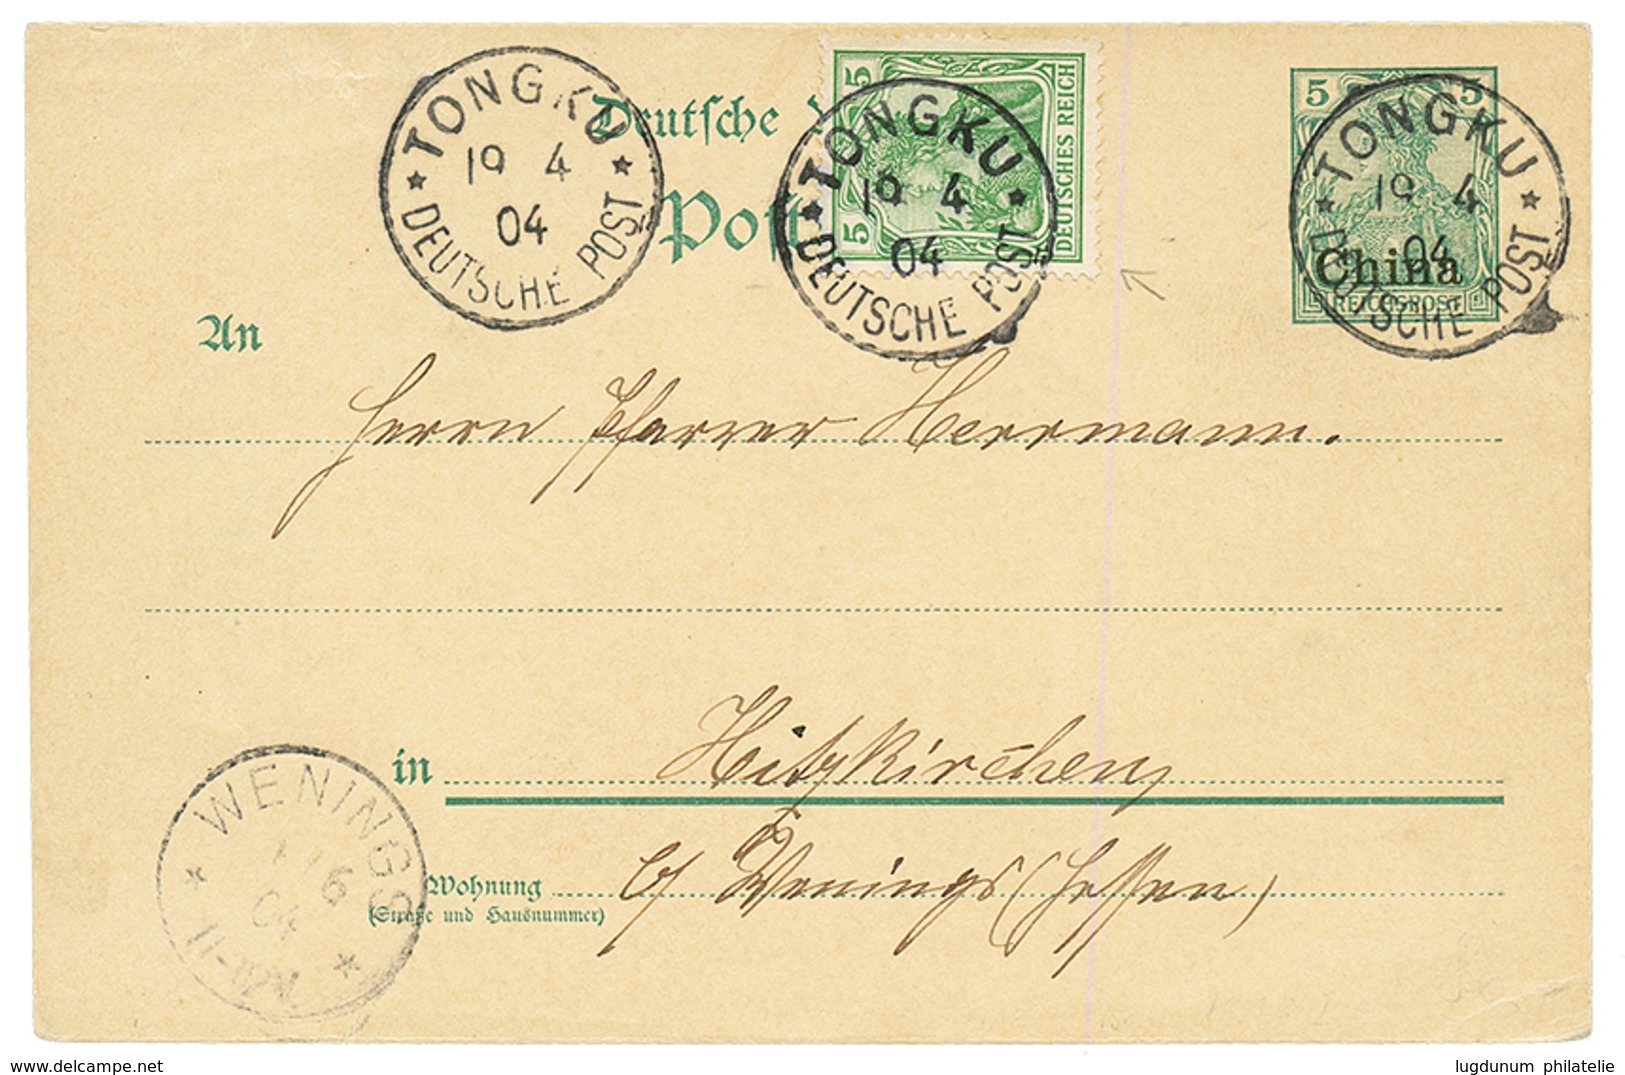 TONGKU
19 4
04
DEUTSCHE POST
Deutsche
Post
5 5
DEUTSCHES REICH
TONGKU
19 4
04
DEUTSCHE POST
5 5
China
REICHSPOST
TONGKU
19 4
04
DEUTSCHE POST
An
Herrn Pfarrer Herrmann.
in Hitzkirchen
Wohnung b/ Wenings (Hessen)
(Straße und Hausnummer)
WENINGS
6
04
11-12V.
lugdunum philatelie